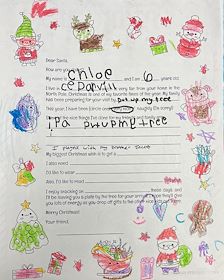 Dear Santa,
How are you
My name is chloe and I am 6 years old.
I live in very far from your home in the
North Pole. Christmas is one of my favorite times of the year. My family
has been preparing for your visit by put up my tree
This year, I have been (circle one) very nice naughty
the nice things I've done for my friends and family
put up my tree
I played with my brother
My biggest Christmas wish is to get a
I also want
I'd like to wear
Also, I'd like to read
I enjoy snacking on these days, and
I'll be leaving you a plate by the tree for your arrival. I hope they'll give
you lots of energy as you drop off gifts to the other nice kids out there.
Merry Christmas!
Your friend,